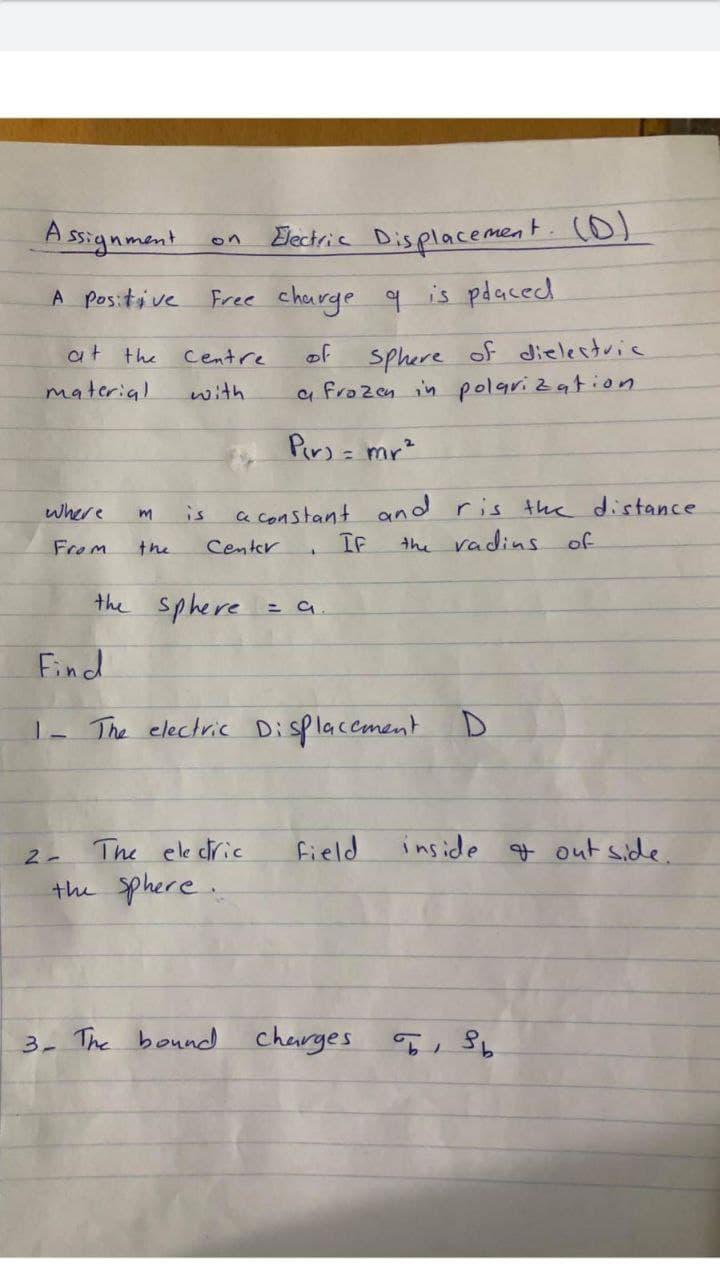 Assignment on Electric Displacement. (D)
A Positive Free charge q is placed
at the Centre of sphere of dielectric
material with a frozen in polarization
P(r) = mr²
where m is a constant and r is the distance
From the Center. IF the radius of
the sphere = a.
Find
1- The electric Displacement D
2- The electric field inside & out side.
the sphere.
3- The bound charges σb, ρb